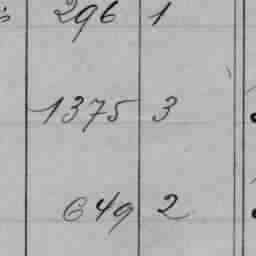 296 1
1375 3
649 2